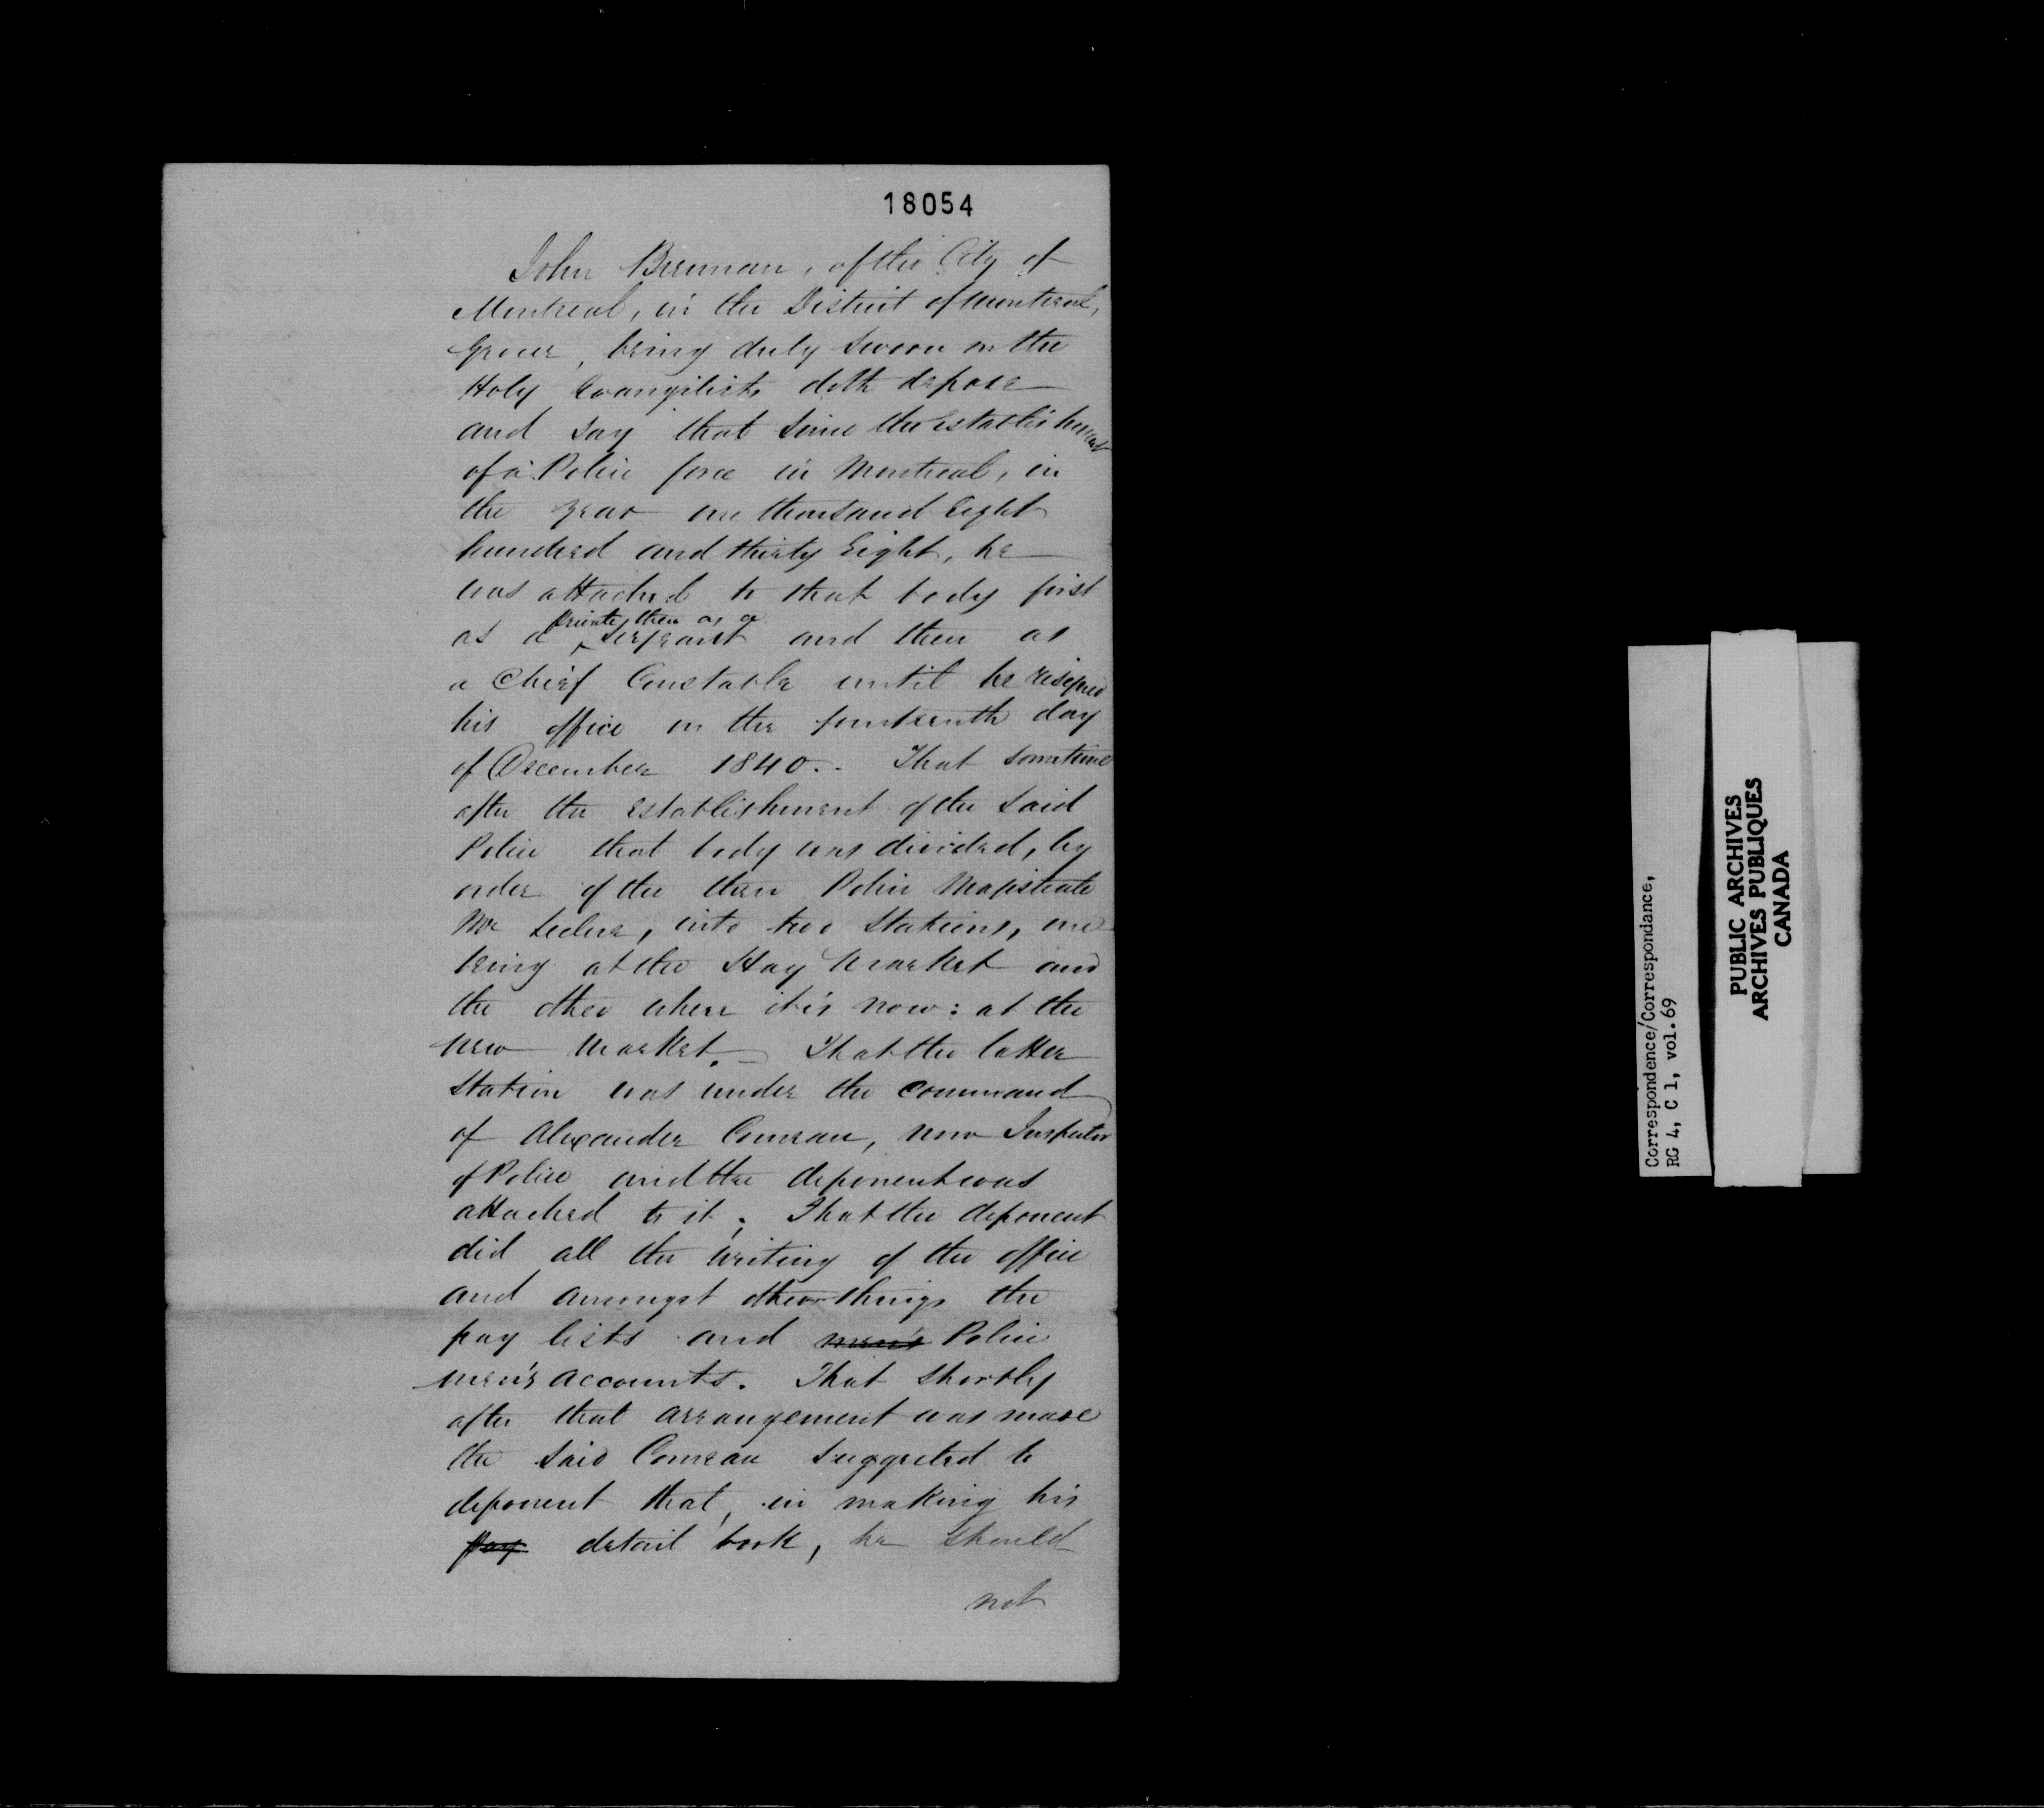 18054
John Brennan, of the City of
Montreal, in the District of Montreal,
Grocer, being duly sworn on the
Holy Evangilists doth depose
and say that since the establishment
of a Police force in Montreal, in
the year one thousand Eight
hundred and thirty Eight, he
was attached to that body first
as a private, then as a serjeant and then as
a Chief Constable until he resigned
his office on the fourteenth day
of December 1840.. That sometime
after the establishment of the said
Police that body was divided, by
order of the then Police Magistrate
Mr Leclere, into two Stations, one
being at the Hay Market and
the other where it is now: at the
new Market. That the latter
Station was under the command
of Alexander Comeau, now Inspector
of Police and the deponent was
attached to it; That the deponent
did all the writing of the office
and amongst other things the
pay lists and men's Police
men's accounts. That shortly
after that arrangement was made
the said Comeau suggested to
deponent that, in making his
pay detail book, he should
not
Correspondence/Correspondance,
RG 4, C 1, vol.69
PUBLIC ARCHIVES
ARCHIVES PUBLIQUES
CANADA